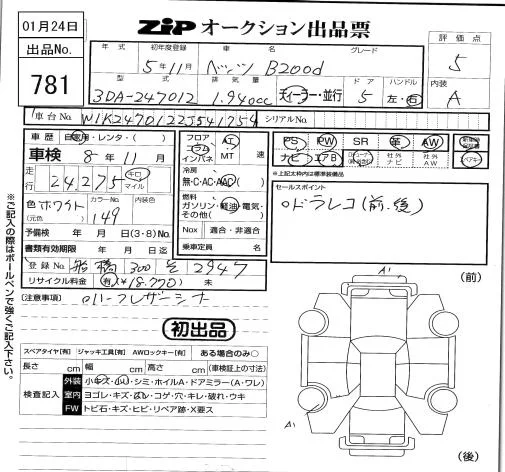 01月24日
ZIP オークション出品票
出品No.
781
年式 初年度登録 車名 グレード
5年11月 ベンツ B200d
型式 排気量 ドア ハンドル
3DA-247012 1,940cc ディーラー・並行 5 左・右
評価点
5
内装
A
車台No. W1K2470122J541754 シリアルNo.
車歴 自家用・レンタ・( )
車検 8年11月
走行 24,275 キロ マイル
色 ホワイト (元色) カラーNo. 149 内装色
予備検 年 月 日(3・8)No.
書類有効期限 年 月 日迄
登録No. 船橋 300 2947
リサイクル料金 有(¥18,770) 未
フロア コラム インパネ AT MT 速
冷房 無・C・AC・AAC( )
燃料 ガソリン・軽油・電気・その他( )
Nox 適合・非適合
乗車定員 名
PS PW SR 革 AW
ナビ エアB 社外ナビ 社外AW
※上記太枠内は標準装備品
セールスポイント
ドラレコ(前、後)
(注意事項) ハーフレザーシート
初出品
スペアタイヤ[有] ジャッキ工具[有] AWロックキー[有] ある場合のみ○
長さ cm 幅 cm 高さ cm (車検証上の寸法)
検査記入
外装 小キズ・ハゲ・シミ・ホイルA・ドアミラー(A・ワレ)
室内 ヨゴレ・キズ・スレ・コゲ・穴・キレ・破れ・ウキ
FW トビ石・キズ・ヒビ・リペア跡・X要ス
(前)
A1
A1
(後)
※ご記入の際はボールペンで強くご記入下さい。